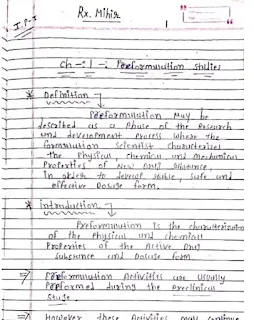 Rx. Mihir
I.P-I
ch - 1 - Preformulation studies
* Definition
Preformulation May be
described as a Phase of the Research
and development Process where the
formulation Scientist characterizes
the Physical, chemical and Mechanical
Properties of New Drug Substance,
in order to develop stable, safe and
effective Dosage form.
* Introduction
Preformulation is the characterization
of the Physical and chemical
Properties of the Active Drug
substance and Dosage form
⇒ Preformulation Activities are usually
Performed during the Preclinical
Stage.
⇒ However these Activities may continue